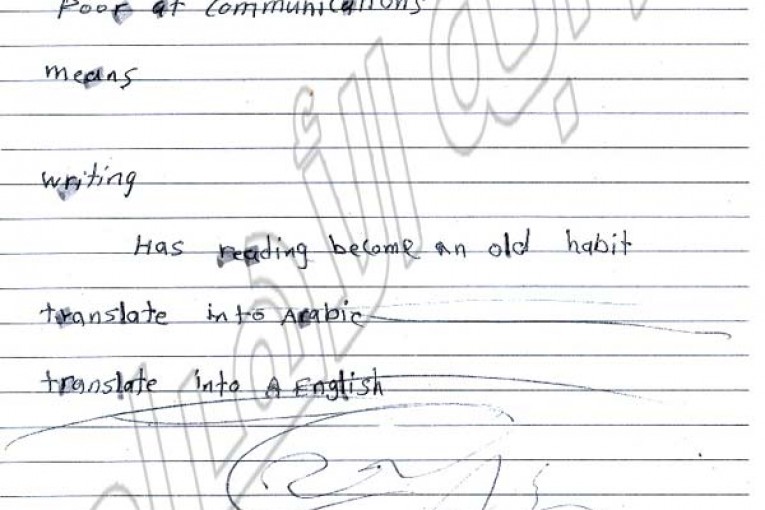 Poor at Communications
means
writing
Has reading become an old habit
translate into Arabic
translate into A English